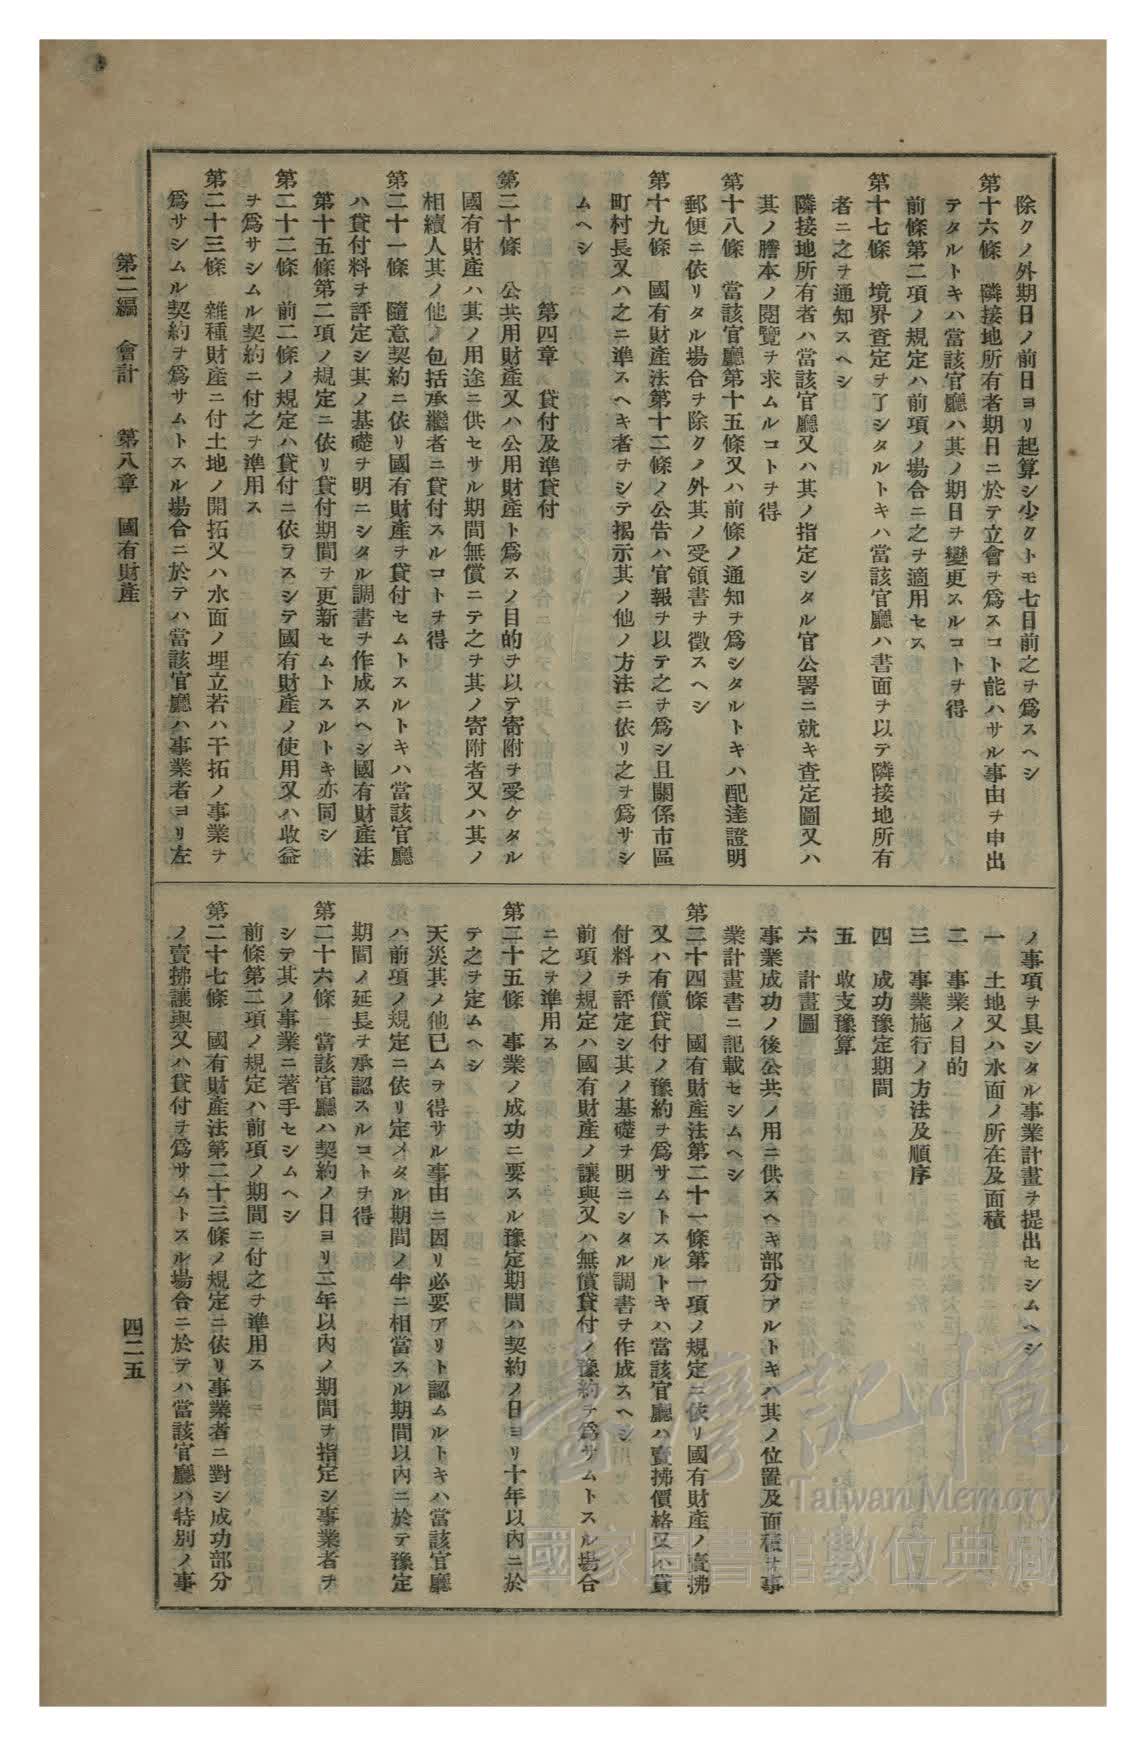 除クノ外期日ノ前日ヨリ起算シ少クトモ七日前之ヲ爲スヘシ
第十六條　隣接地所有者期日ニ於テ立會ヲ爲スコト能ハサル事由ヲ申出
テタルトキハ當該官廳ハ其ノ期日ヲ變更スルコトヲ得
前條第二項ノ規定ハ前項ノ場合ニ之ヲ適用セス
第十七條　境界査定ヲ了シタルトキハ當該官廳ハ書面ヲ以テ隣接地所有
者ニ之ヲ通知スヘシ
隣接地所有者ハ當該官廳又ハ其ノ指定シタル官公署ニ就キ査定圖又ハ
其ノ謄本ノ閲覽ヲ求ムルコトヲ得
第十八條　當該官廳第十五條又ハ前條ノ通知ヲ爲シタルトキハ配達證明
郵便ニ依リタル場合ヲ除クノ外其ノ受領書ヲ徴スヘシ
第十九條　國有財產法第十二條ノ公告ハ官報ヲ以テ之ヲ爲シ且關係市區
町村長又ハ之ニ準スヘキ者ヲシテ揭示其ノ他ノ方法ニ依リ之ヲ爲サシ
ムヘシ
第四章　貸付及準貸付
第二十條　公共用財產又ハ公用財產ト爲スノ目的ヲ以テ寄附ヲ受ケタル
國有財產ハ其ノ用途ニ供セサル期間無償ニテ之ヲ其ノ寄附者又ハ其ノ
相續人其ノ他ノ包括承繼者ニ貸付スルコトヲ得
第二十一條　隨意契約ニ依リ國有財產ヲ貸付セムトスルトキハ當該官廳
ハ貸付料ヲ評定シ其ノ基礎ヲ明ニシタル調書ヲ作成スヘシ國有財產法
第十五條第二項ノ規定ニ依リ貸付期間ヲ更新セムトスルトキ亦同シ
第二十二條　前二條ノ規定ハ貸付ニ依ラスシテ國有財產ノ使用又ハ收益
ヲ爲サシムル契約ニ付之ヲ準用ス
第二十三條　雜種財產ニ付土地ノ開拓又ハ水面ノ埋立若ハ干拓ノ事業ヲ
爲サシムル契約ヲ爲サムトスル場合ニ於テハ當該官廳ハ事業者ヨリ左
ノ事項ヲ具シタル事業計畫ヲ提出セシムヘシ
一　土地又ハ水面ノ所在及面積
二　事業ノ目的
三　事業施行ノ方法及順序
四　成功豫定期間
五　收支豫算
六　計畫圖
事業成功ノ後公共ノ用ニ供スヘキ部分アルトキハ其ノ位置及面積ヲ事
業計畫書ニ記載セシムヘシ
第二十四條　國有財產法第二十一條第一項ノ規定ニ依リ國有財產ノ賣拂
又ハ有償貸付ノ豫約ヲ爲サムトスルトキハ當該官廳ハ賣拂價格又ハ貸
付料ヲ評定シ其ノ基礎ヲ明ニシタル調書ヲ作成スヘシ
前項ノ規定ハ國有財產ノ讓與又ハ無償貸付ノ豫約ヲ爲サムトスル場合
ニ之ヲ準用ス
第二十五條　事業ノ成功ニ要スル豫定期間ハ契約ノ日ヨリ十年以內ニ於
テ之ヲ定ムヘシ
天災其ノ他已ムヲ得サル事由ニ因リ必要アリト認ムルトキハ當該官廳
ハ前項ノ規定ニ依リ定メタル期間ノ半ニ相當スル期間以內ニ於テ豫定
期間ノ延長ヲ承認スルコトヲ得
第二十六條　當該官廳ハ契約ノ日ヨリ二年以內ノ期間ヲ指定シ事業者ヲ
シテ其ノ事業ニ著手セシムヘシ
前條第二項ノ規定ハ前項ノ期間ニ付之ヲ準用ス
第二十七條　國有財產法第二十三條ノ規定ニ依リ事業者ニ對シ成功部分
ノ賣拂讓與又ハ貸付ヲ爲サムトスル場合ニ於テハ當該官廳ハ特別ノ事
第二編　會計　第八章　國有財產
四二五
臺灣記憶
Taiwan Memory
國家圖書館數位典藏